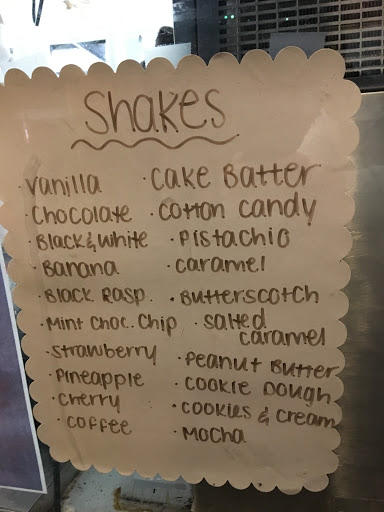 Shakes
· Vanilla
· Chocolate
· Black & White
· Banana
· Black Rasp.
· Mint Choc. Chip
· Strawberry
· Pineapple
· Cherry
· Coffee
· Cake Batter
· Cotton Candy
· Pistachio
· Caramel
· Butterscotch
· Salted
Caramel
· Peanut Butter
· Cookie Dough
· Cookies & Cream
· Mocha